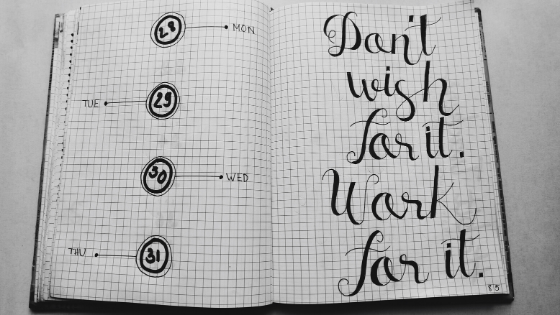 28
MON
TUE
29
30
WED
THU
31
Don't
wish
for it.
Work
for it.